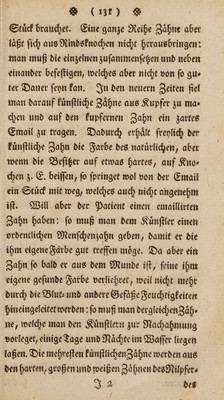 ( 131 )
Stück brauchet. Eine ganze Reihe Zähne aber
läßt sich aus Rindsknochen nicht herausbringen:
man muß die einzelnen zusammensetzen und neben
einander befestigen, welches aber nicht von so gu-
ter Dauer seyn kan. In den neuern Zeiten fiel
man darauf künstliche Zähne aus Kupfer zu ma-
chen und auf den kupfernen Zahn ein zartes
Email zu tragen. Dadurch erhält freylich der
künstliche Zahn die Farbe des natürlichen, aber
wenn die Besitzer auf etwas hartes, auf Kno-
chen z. E. beissen, so springet wol von der Email
ein Stück mit weg, welches auch nicht angenehm
ist. Will aber der Patient einen emaillirten
Zahn haben: so muß man dem Künstler einen
ordentlichen Menschenzahn geben, damit er die
ihm eigene Farbe gut treffen möge. Da aber ein
Zahn so bald er aus dem Munde ist, seine ihm
eigene gesunde Farbe verliehret, weil nicht mehr
durch die Blut- und andere Gefäße Feuchtigkeiten
hineingeleitet werden: so muß man dergleichen Zäh-
ne, welche man den Künstlern zur Nachahmung
vorleget, einige Tage und Nächte im Wasser liegen
laßen. Die mehresten künstlichen Zähne werden aus
den harten, großen und weißen Zähnen des Nilpfer-
J 2
des